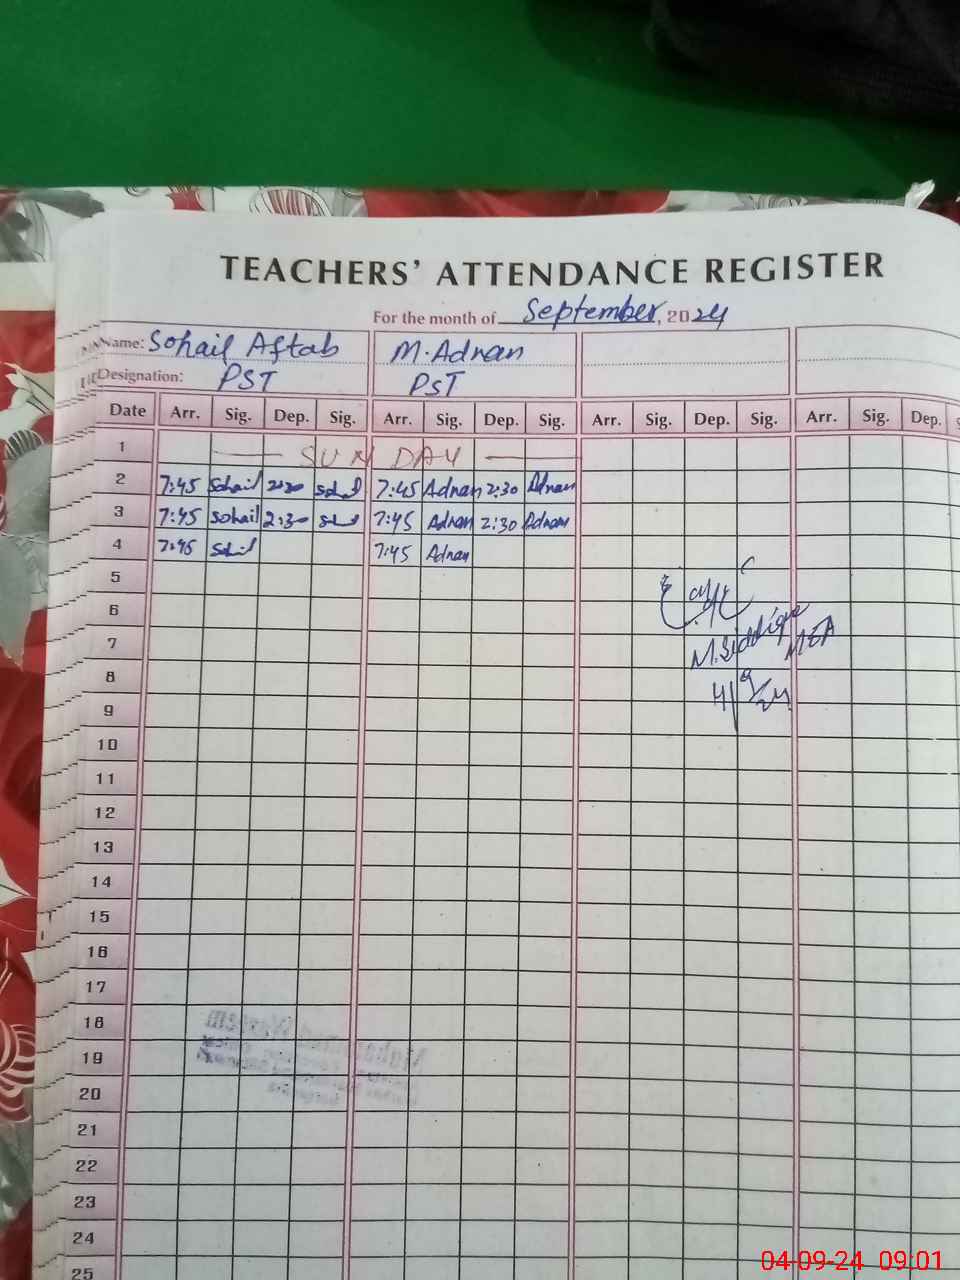 TEACHERS' ATTENDANCE REGISTER
For the month of September, 2024
Name: Sohail Aftab M. Adnan
Designation: PST PST
Date Arr. Sig. Dep. Sig. Arr. Sig. Dep. Sig. Arr. Sig. Dep. Sig. Arr. Sig. Dep.
1 SUNDAY
2 7:45 Sohail 2:30 Sohail 7:45 Adnan 2:30 Adnan
3 7:45 Sohail 2:30 7:45 Adnan 2:30 Adnan
4 7:45 Sohail 7:45 Adnan
5
6
7 M. Siddique MEA
8 4/9/24
9
10
11
12
13
14
15
16
17
18
19
20
21
22
23
24
25
04-09-24 09:01